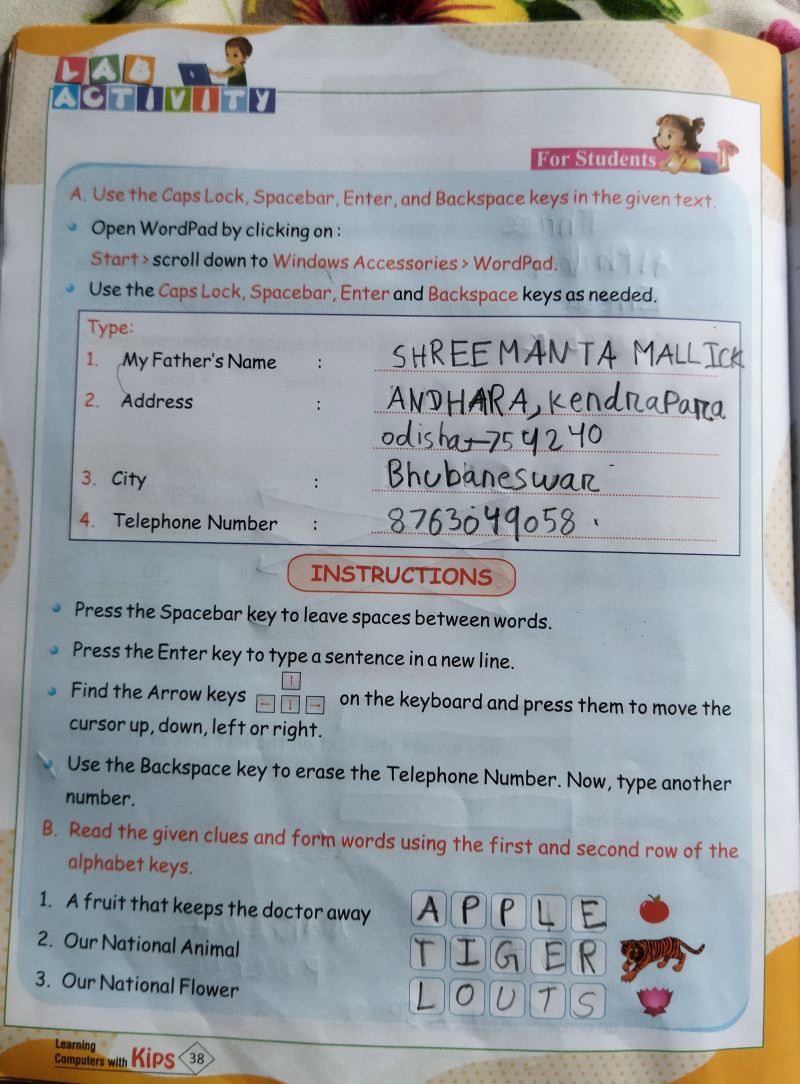 LAB
ACTIVITY
For Students
A. Use the Caps Lock, Spacebar, Enter, and Backspace keys in the given text.
Open WordPad by clicking on :
Start > scroll down to Windows Accessories > WordPad.
Use the Caps Lock, Spacebar, Enter and Backspace keys as needed.
Type:
1. My Father's Name : SHREEMANTA MALLICK
2. Address : ANDHARA, Kendrapara
odisha-754240
3. City : Bhubaneswar
4. Telephone Number : 8763049058
INSTRUCTIONS
Press the Spacebar key to leave spaces between words.
Press the Enter key to type a sentence in a new line.
Find the Arrow keys ↑ ← ↓ → on the keyboard and press them to move the
cursor up, down, left or right.
Use the Backspace key to erase the Telephone Number. Now, type another
number.
B. Read the given clues and form words using the first and second row of the
alphabet keys.
1. A fruit that keeps the doctor away APPLE
2. Our National Animal TIGER
3. Our National Flower LOUTS
Learning
Computers with Kips 38